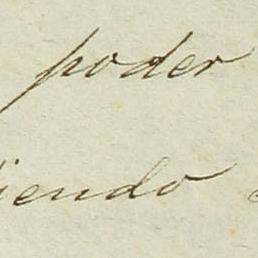 poder
iendo